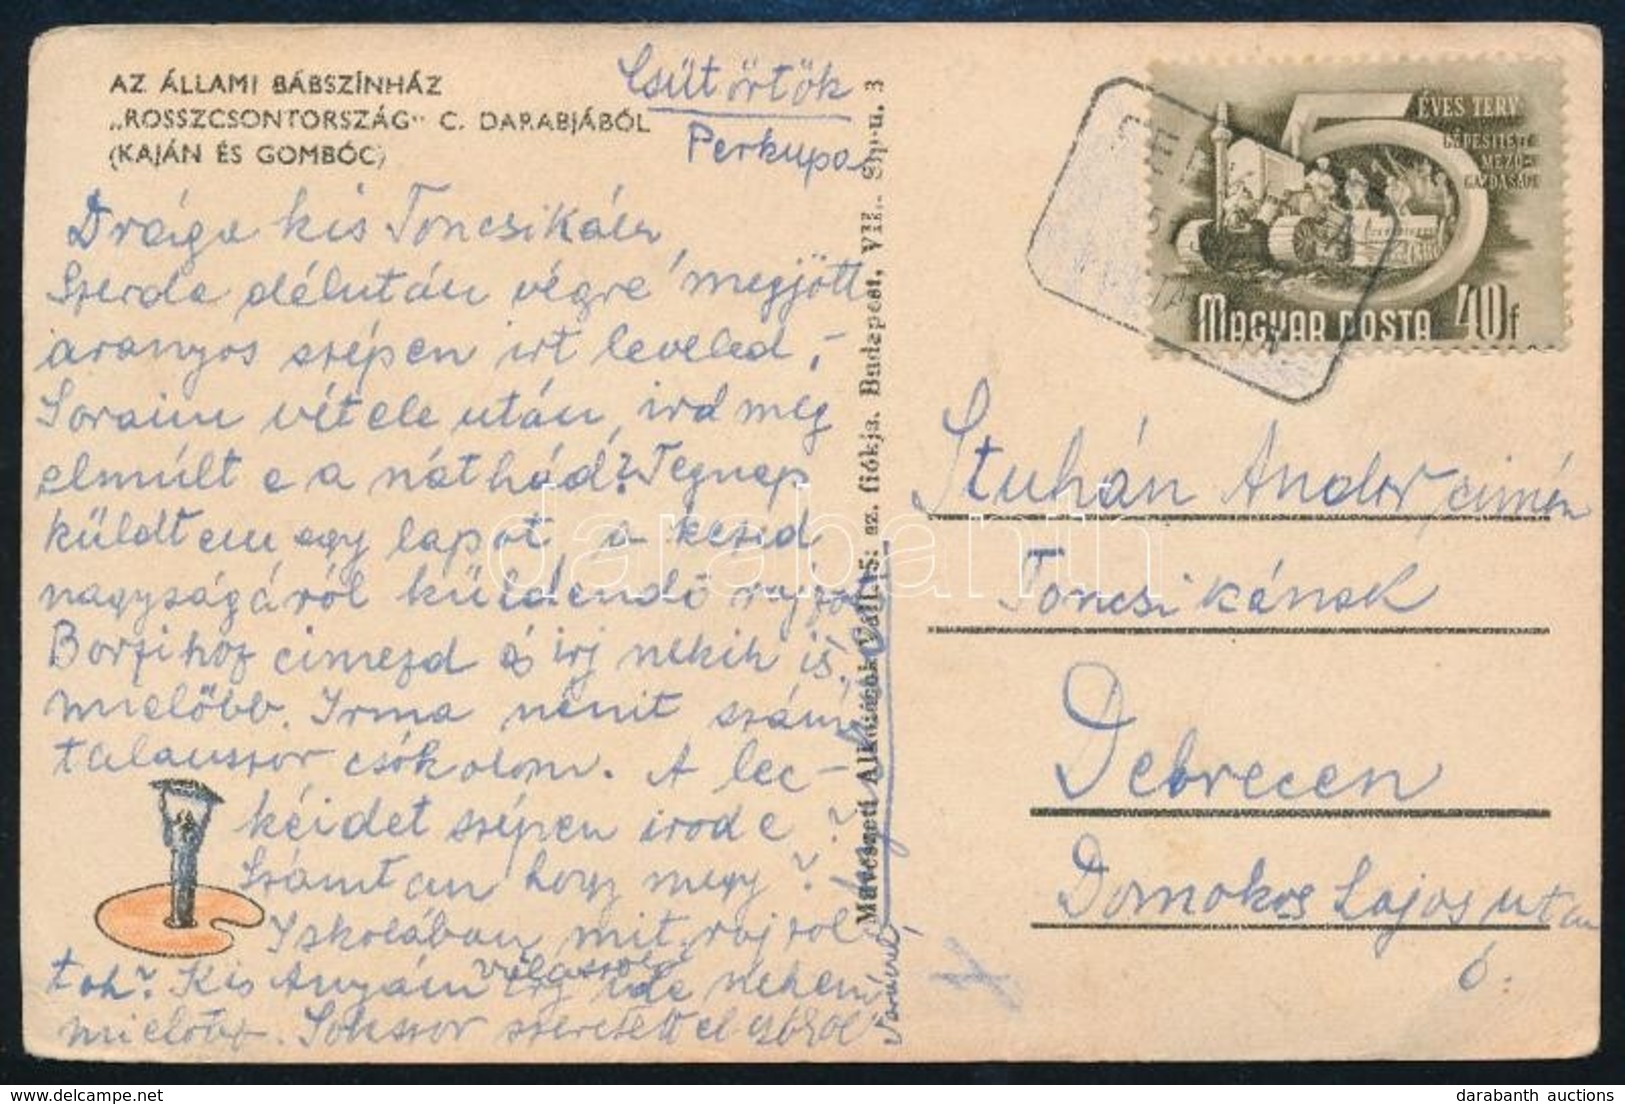 AZ ÁLLAMI BÁBSZÍNHÁZ
„ROSSZCSONTORSZÁG" C. DARABJÁBÓL
(KAJÁN ÉS GOMBÓC)
Csütörtök
Perkupa
Drága kis Toncsikám,
Szerda délután végre megjött
aranyos szépen irt leveled,-
Soraim vétele után, ird meg
elmúlt e a náthád? Tegnap
küldtem egy lapot, a kezid
nagyságáról küldendő rajzot
Borzihoz cimezd és irj nekik is,
mielőbb. Irma nénit szám-
talanszor csókolom. A lec-
kéidet szépen irod e ?
Számtan hogy megy?
Iskolában mit rajzol-
tok? Kis Anyám válaszolj irj ide nekem
mielőbb. Sokszor szeretettel csókol
Művészeti Alkotások Váll. 15: sz. fiókja. Budapest, VIII. Síp-u. 3
5 ÉVES TERV
GÉPESÍTETT
MEZŐ-
GAZDASÁG
MAGYAR POSTA 40f
POSTA
Stuhán Andor címén
Toncsikának
Debrecen
Domokos Lajos utca
6.
darabanth
darabanth auctions